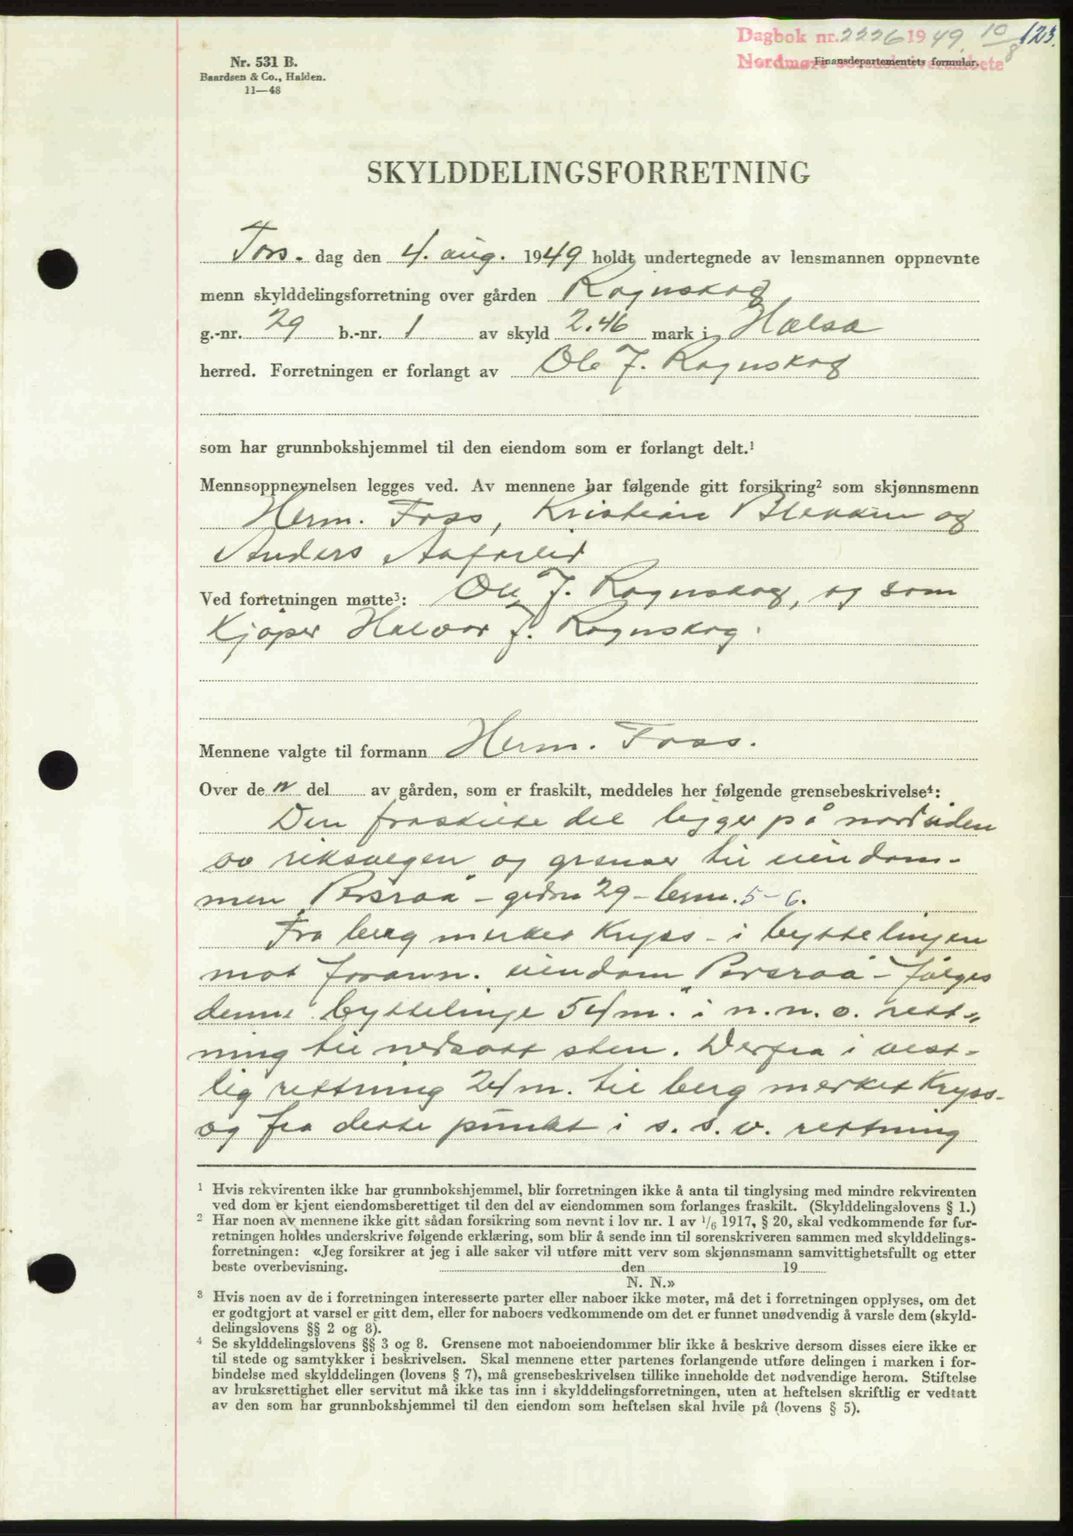 Dagbok nr. 2226 1949. 10/8 123.
Nordmøre sorenskriverembete
Finansdepartementets formular.
Nr. 531 B.
Baardsen & Co., Halden.
11—48
SKYLDDELINGSFORRETNING
Tors. dag den 4. aug. 1949 holdt undertegnede av lensmannen oppnevnte
menn skylddelingsforretning over gården Rognskog
g.-nr. 29 b.-nr. 1 av skyld 2.46 mark i Halsa
herred. Forretningen er forlangt av Ole J. Rognskog
som har grunnbokshjemmel til den eiendom som er forlangt delt.¹
Mennsoppnevnelsen legges ved. Av mennene har følgende gitt forsikring² som skjønnsmenn
Herm. Foss, Kristian Blekken og
Anders
Ved forretningen møtte³: Ole J. Rognskog, og som
Kjøper Halvor J. Rognskog.
Mennene valgte til formann Herm. Foss.
Over de n del av gården, som er fraskilt, meddeles her følgende grensebeskrivelse⁴:
Den fraskilte del ligger på nordsiden
av riksvegen og grenser til eiendom-
men "Persraa" - gr.nr. 29 - br.nr. 5-6.
Fra berg merket Kryss - i byttelinjen
mot forann. eiendom "Persraa" - følges
denne byttelinje 54 m. i n.n.o. rett-
ning til nedsatt sten. Derfra i vest-
lig rettning 24 m. til berg merket Kryss -
og fra dette punkt i s.s.v. rettning
¹ Hvis rekvirenten ikke har grunnbokshjemmel, blir forretningen ikke å anta til tinglysing med mindre rekvirenten
ved dom er kjent eiendomsberettiget til den del av eiendommen som forlanges fraskilt. (Skylddelingslovens § 1.)
² Har noen av mennene ikke gitt sådan forsikring som nevnt i lov nr. 1 av 1/6 1917, § 20, skal vedkommende før for-
retningen holdes underskrive følgende erklæring, som blir å sende inn til sorenskriveren sammen med skylddelings-
forretningen: «Jeg forsikrer at jeg i alle saker vil utføre mitt verv som skjønnsmann samvittighetsfullt og etter
beste overbevisning. den 19
N. N.»
³ Hvis noen av de i forretningen interesserte parter eller naboer ikke møter, må det i forretningen opplyses, om det
er godtgjort at varsel er gitt dem, eller for naboers vedkommende om det er funnet unødvendig å varsle dem (skyld-
delingslovens §§ 2 og 8).
⁴ Se skylddelingslovens §§ 3 og 8. Grensene mot naboeiendommer blir ikke å beskrive dersom disses eiere ikke er
til stede og samtykker i beskrivelsen. Skal mennene etter partenes forlangende utføre delingen i marken i for-
bindelse med skylddelingen (lovens § 7), må grensebeskrivelsen tillike inneholde det nødvendige herom. Stiftelse
av bruksrettighet eller servitut må ikke tas inn i skylddelingsforretningen, uten at heftelsen skriftlig er vedtatt
av den som har grunnbokshjemmel til den eiendom som heftelsen skal hvile på (lovens § 5).